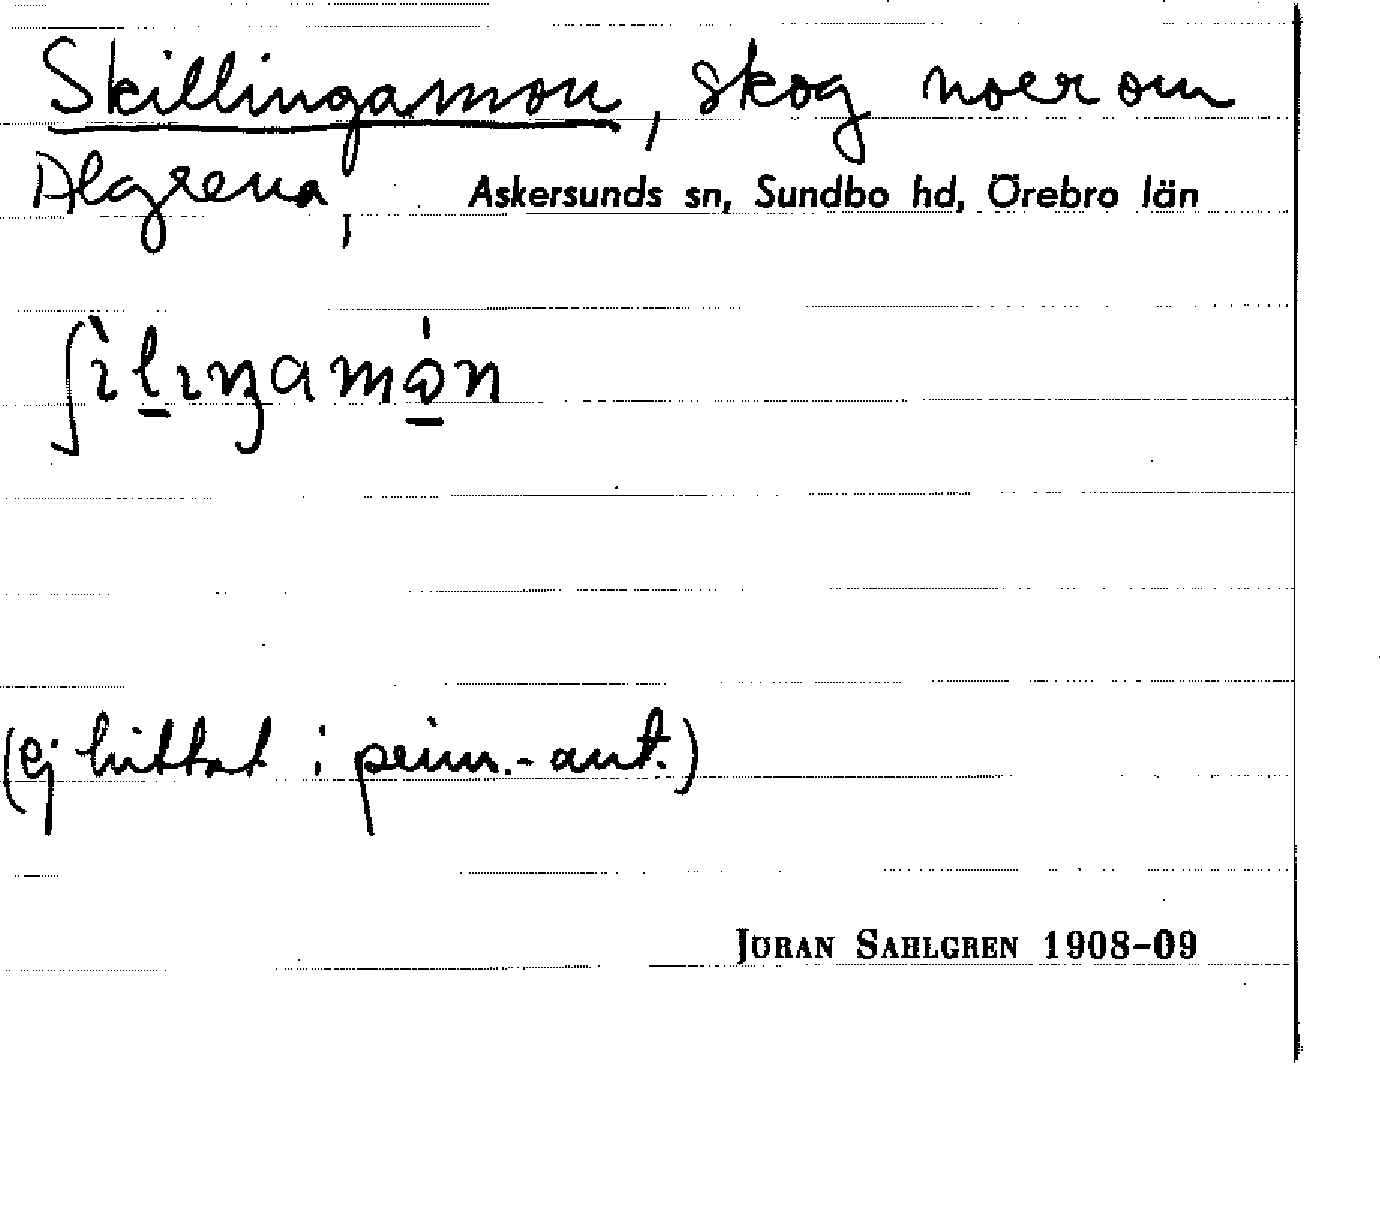 Skillingamon, skog norr om
Algrena, Askersunds sn, Sundbo hd, Örebro län
ʃìlıŋamón
(ej hittat i prim.-ant.)
JÖRAN SAHLGREN 1908-09